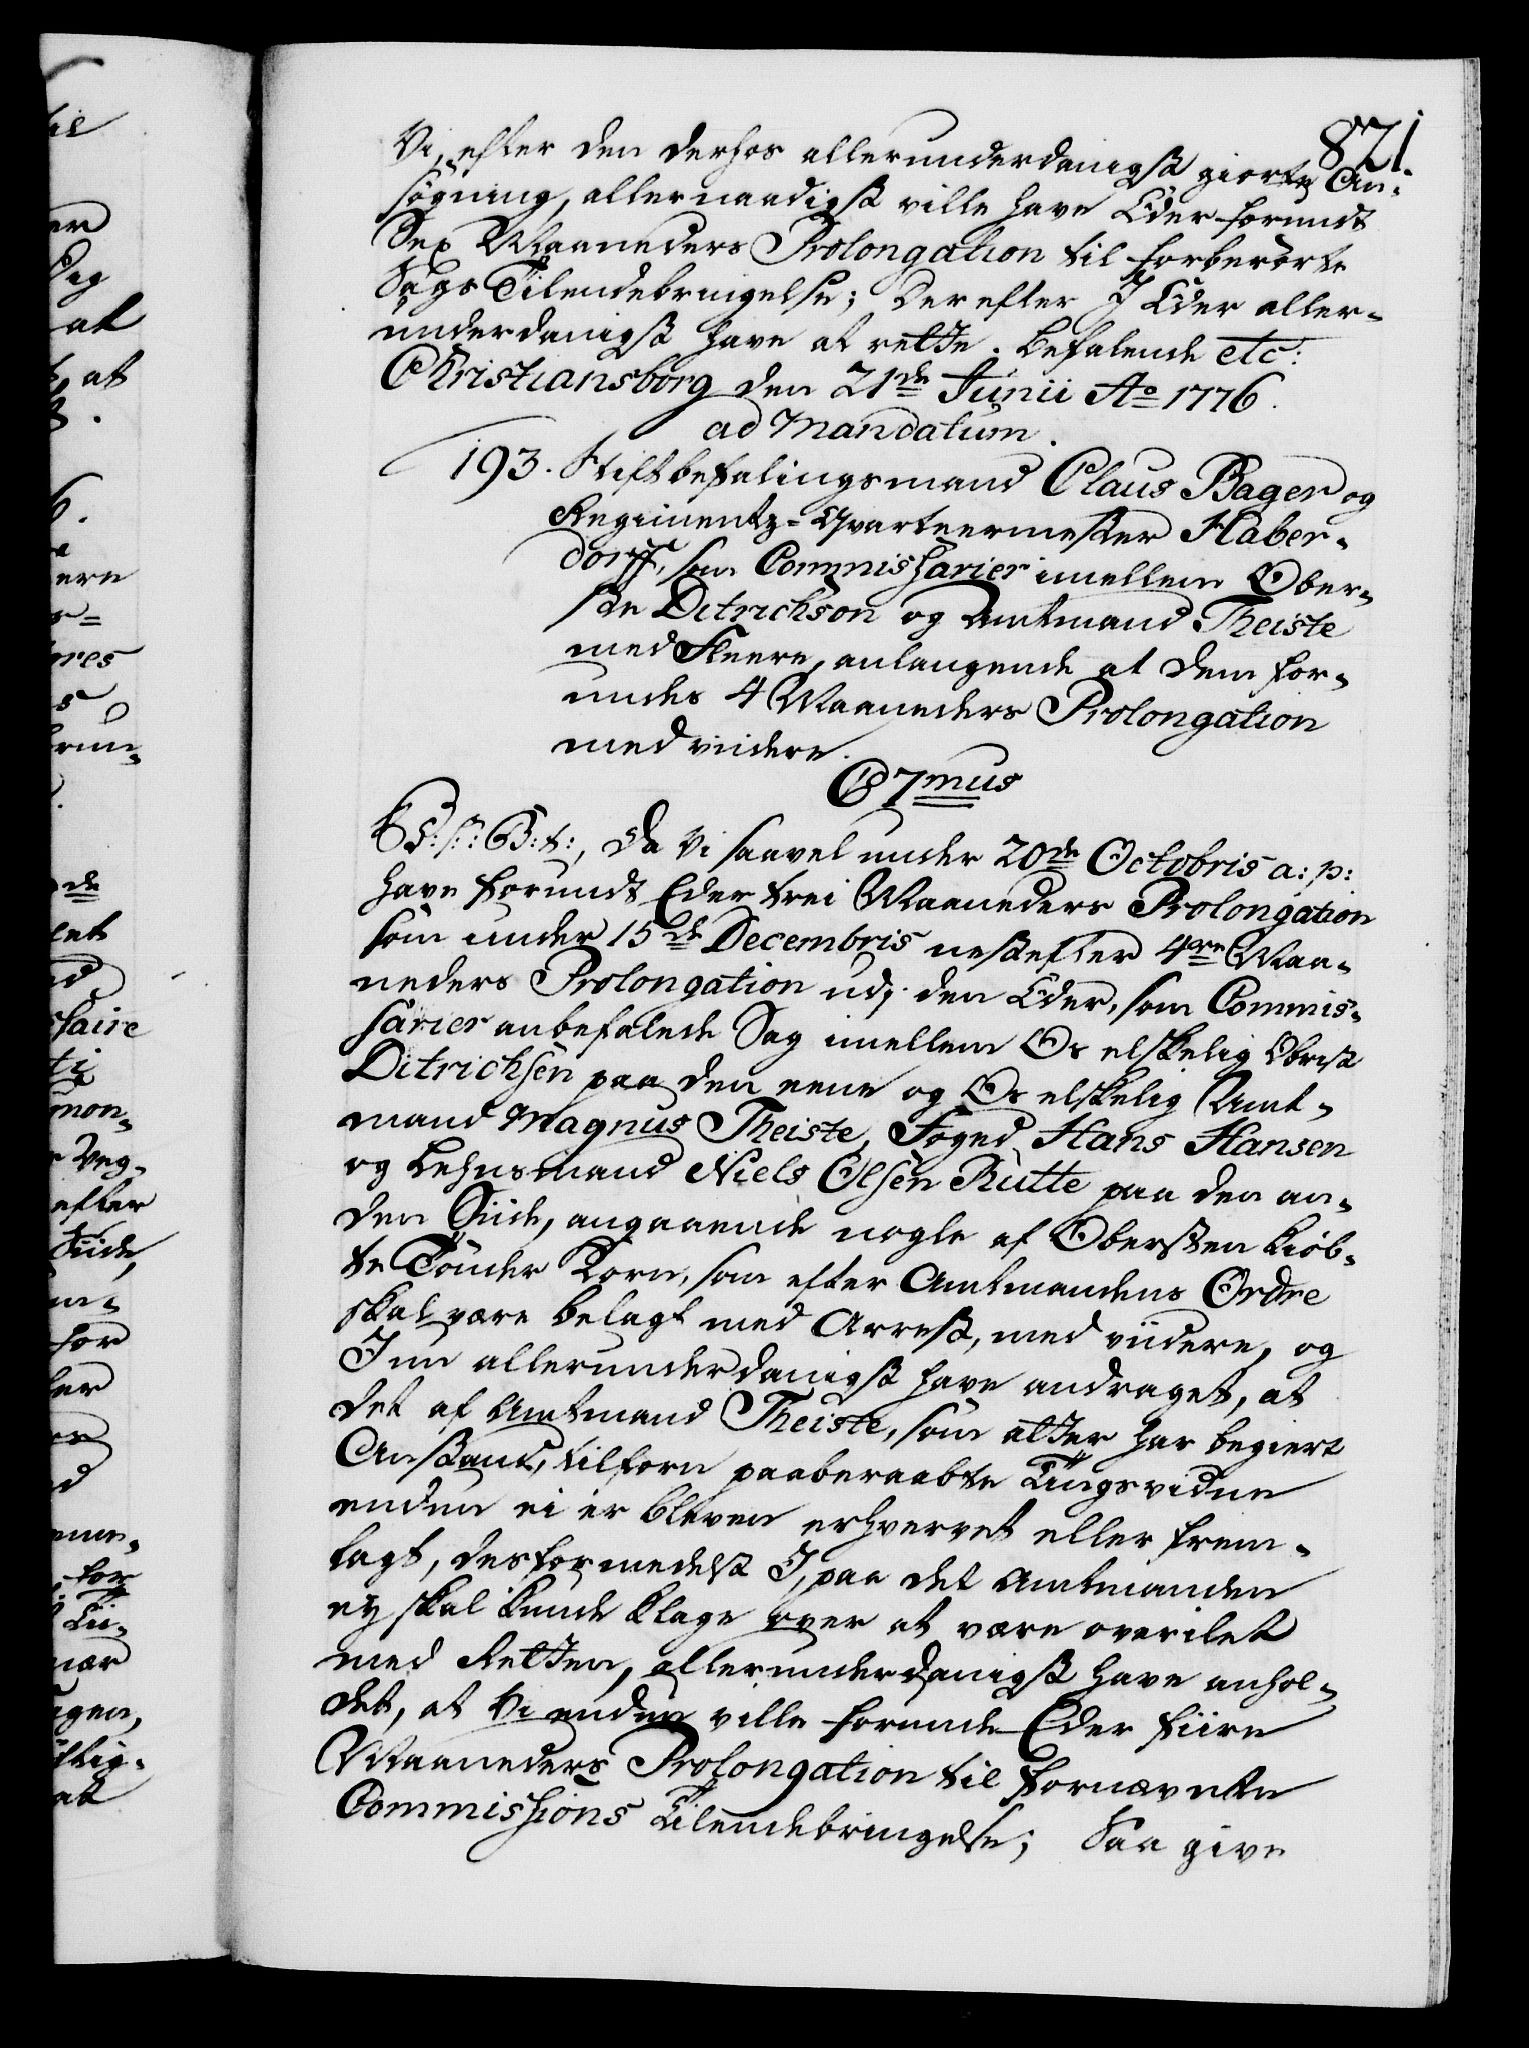 871
Vi, efter den derhos allerunderdanigst giorte An-
søgning, allernaadigst ville have Eder forundt
Sex Maaneders Prolongation til forberørte
Sags Tilendebringelse; Derefter I Eder aller-
underdanigst have at rette. Befalende etc:
Christiansborg den 21de Junii Ao 1776.
ad Mandatum.
193. Stiftbefalingsmand Claus Bager og
Regimentz-Qvarteermester Haber-
dorff, som Commissarier imellem Ober-
ste Ditrichson og Amtmand Theiste
med Fleere, anlangende at dem for-
undes 4 Maaneders Prolongation
med viidere.
C 7mus
S: s: G: t:, Da Vi saavel under 20de Octobris a: p:
have forundt Eder trei Maaneders Prolongation
som under 15de Decembris nestefter 4re Maa-
neders Prolongation udj den Eder, som Commis-
sarier anbefalede Sag imellem Os elskelig Obrist
Ditrichsen paa den eene og Os elskelig Amt-
mand Magnus Theiste, Foged Hans Hansen
og Lehnsmand Niels Olsen Rutte paa den an-
den Siide, angaaende nogle af Obersten kiøb-
te Tønder Korn, som efter Amtmandens Ordre
skal være belagt med Arrest, med viidere, og
I nu allerunderdanigst have andraget, at
det af Amtmand Theiste, som atter har begiert
Anstand, tilforn paaberaabte Tingsvidne
endnu ei er bleven erhvervet eller frem-
lagt, desformedelst I, paa det Amtmanden
ey skal kunde klage over at være overilet
med Retten, allerunderdanigst have anhol-
det, at Vi endnu ville forunde Eder fiire
Maaneders Prolongation til fornævnte
Commissions Tilendebringelse; Saa give